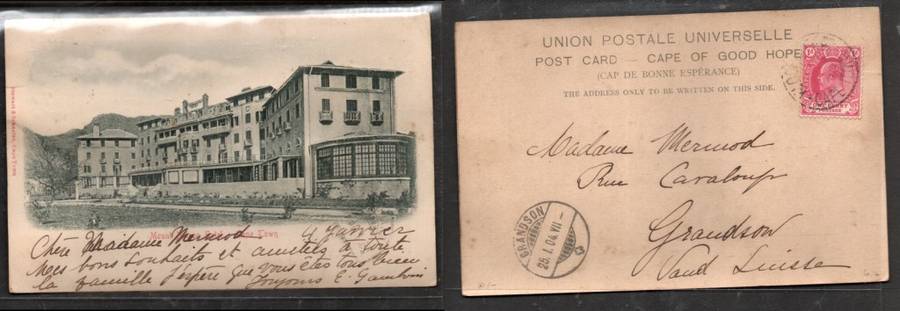 Mount Hotel Cape Town
4 Janvier
Chère Madame Mermod
Mes bons souhaits et amitiés à toute
la famille J'espère que vous êtes tous bien
Toujours E.
UNION POSTALE UNIVERSELLE
POST CARD — CAPE OF GOOD HOPE
(CAP DE BONNE ESPÉRANCE)
THE ADDRESS ONLY TO BE WRITTEN ON THIS SIDE.
Madame Mermod
Rue Cavaloup
Grandson
Vaud Suisse
GRANDSON
25.I.04.VII-